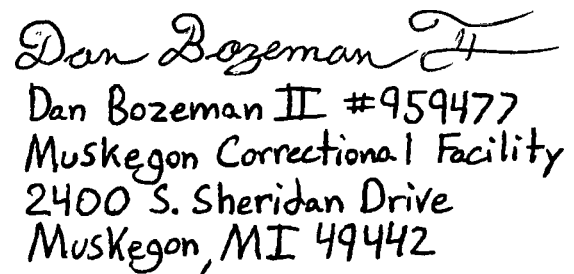 Dan Bozeman II
Dan Bozeman II #959477
Muskegon Correctional Facility
2400 S. Sheridan Drive
Muskegon, MI 49442